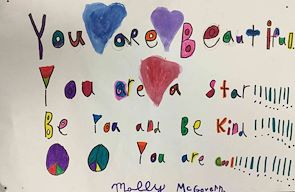 You are Beautiful
You are a star!!!!!!!!!
Be You and Be Kind
You are cool!!!!!!!!
Molly McGovern